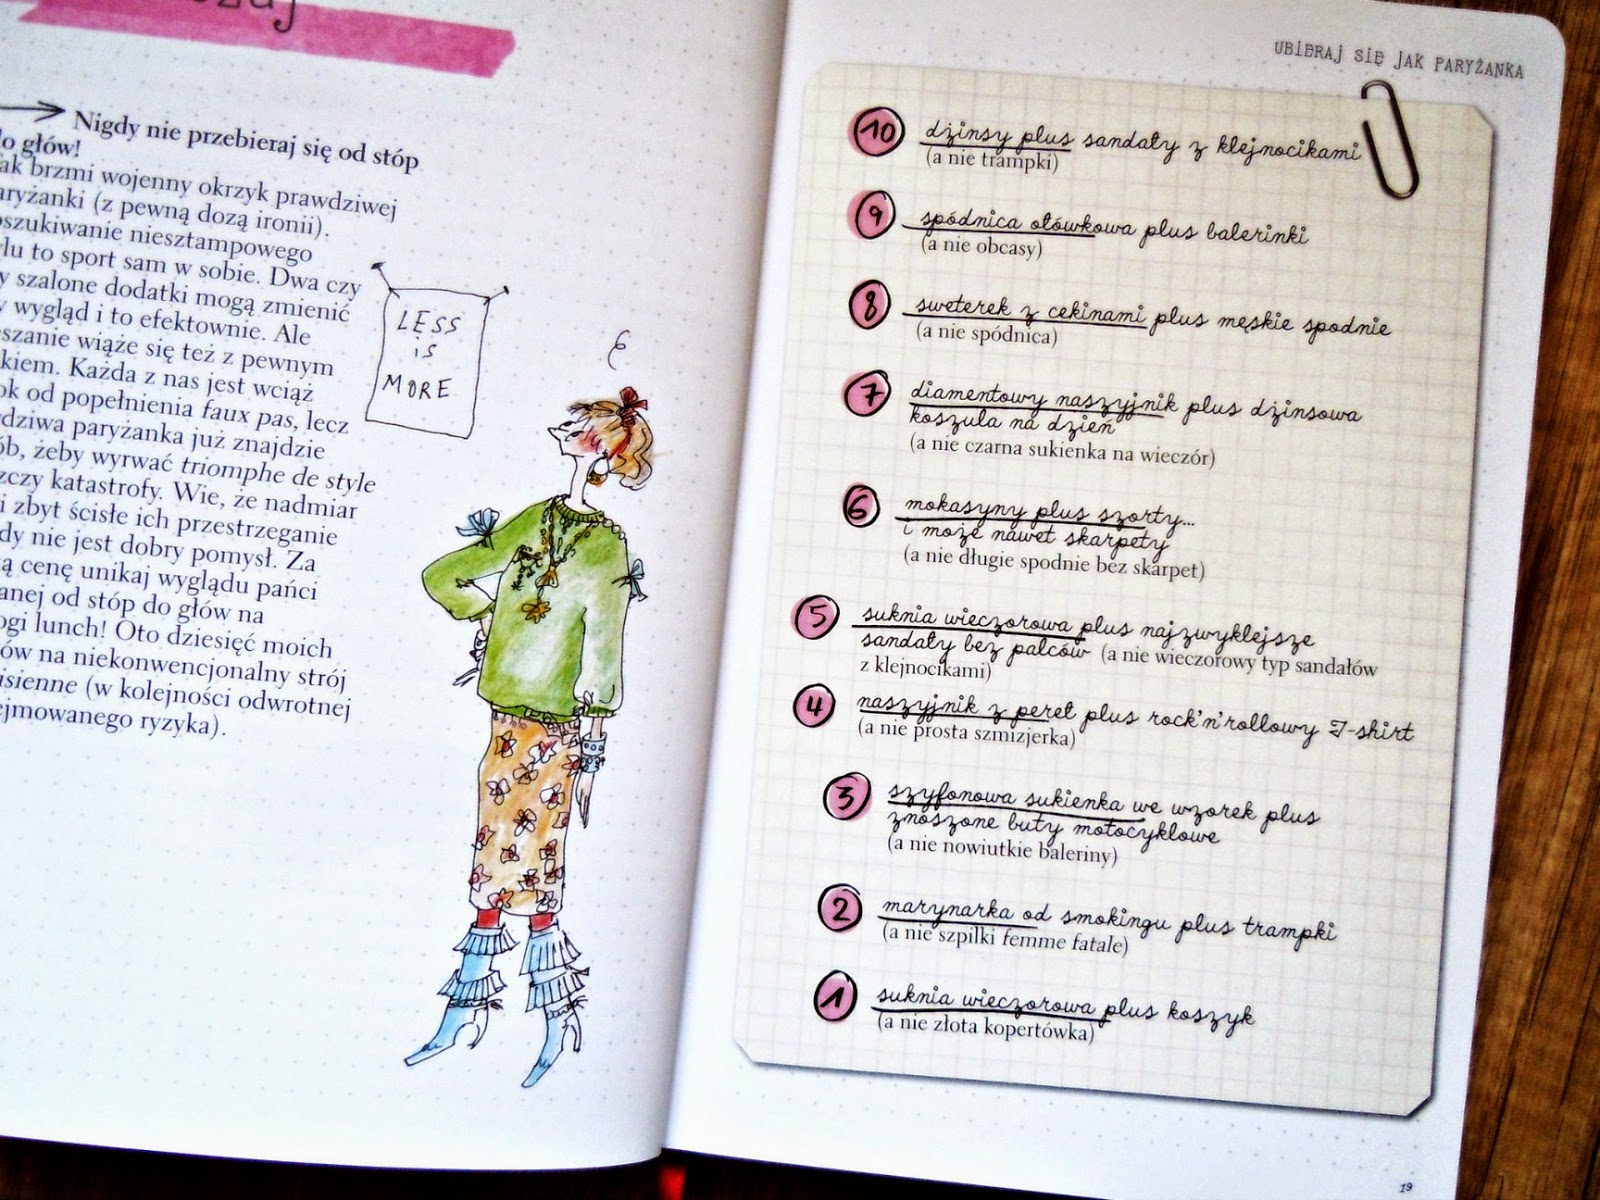 Nigdy nie przebieraj się od stóp
do głów!
Tak brzmi wojenny okrzyk prawdziwej
paryżanki (z pewną dozą ironii).
niesztampowego
to sport sam w sobie. Dwa czy
szalone dodatki mogą zmienić
wygląd i to efektownie. Ale
wiąże się też z pewnym
Każda z nas jest wciąż
od popełnienia faux pas, lecz
paryżanka już znajdzie
żeby wyrwać triomphe de style
katastrofy. Wie, że nadmiar
i zbyt ścisłe ich przestrzeganie
nie jest dobry pomysł. Za
cenę unikaj wyglądu pańci
od stóp do głów na
lunch! Oto dziesięć moich
na niekonwencjonalny strój
(w kolejności odwrotnej
ryzyka).
LESS
is
MORE
UBIERAJ SIĘ JAK PARYŻANKA
10 dżinsy plus sandały z klejnocikami
(a nie trampki)
9 spódnica ołówkowa plus balerinki
(a nie obcasy)
8 sweterek z cekinami plus męskie spodnie
(a nie spódnica)
7 diamentowy naszyjnik plus dżinsowa
koszula na dzień
(a nie czarna sukienka na wieczór)
6 mokasyny plus szorty...
i może nawet skarpety
(a nie długie spodnie bez skarpet)
5 suknia wieczorowa plus najzwyklejsze
sandały bez palców (a nie wieczorowy typ sandałów
z klejnocikami)
4 naszyjnik z pereł plus rock'n'rollowy T-shirt
(a nie prosta szmizjerka)
3 szyfonowa sukienka we wzorek plus
znoszone buty motocyklowe
(a nie nowiutkie baleriny)
2 marynarka od smokingu plus trampki
(a nie szpilki femme fatale)
1 suknia wieczorowa plus koszyk
(a nie złota kopertówka)
19